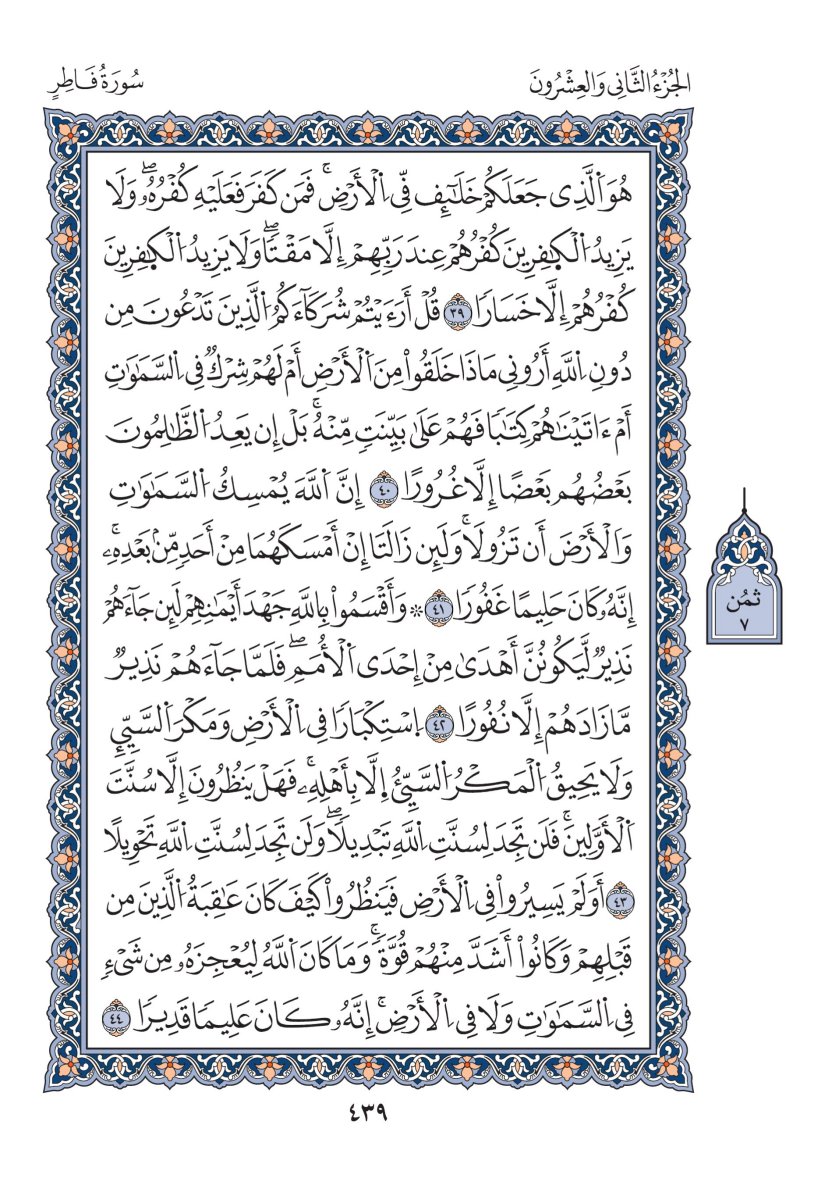 الجُزْءُ الثَّانِي وَالعِشْرُونَ
سُورَةُ فَاطِرٍ
هُوَ اَ۬لَّذِي جَعَلَكُمْ خَلَٰٓئِفَ فِي اِ۬لْأَرْضِۚ فَمَن كَفَرَ فَعَلَيْهِ كُفْرُهُۥۖ وَلَا
يَزِيدُ اُ۬لْكَٰفِرِينَ كُفْرُهُمْ عِندَ رَبِّهِمْ إِلَّا مَقْتٗاۖ وَلَا يَزِيدُ اُ۬لْكَٰفِرِينَ
كُفْرُهُمْ إِلَّا خَسَارٗا ٣٩ قُلْ أَرَءَيْتُمْ شُرَكَآءَكُمُ اُ۬لَّذِينَ تَدْعُونَ مِن
دُونِ اِ۬للَّهِ أَرُونِي مَاذَا خَلَقُواْ مِنَ اَ۬لْأَرْضِ أَمْ لَهُمْ شِرْكٞ فِي اِ۬لسَّمَٰوَٰتِ
أَمْ ءَاتَيْنَٰهُمْ كِتَٰبٗا فَهُمْ عَلَىٰ بَيِّنَتٖ مِّنْهُۚ بَلْ إِن يَعِدُ اُ۬لظَّٰلِمُونَ
بَعْضُهُم بَعْضًا إِلَّا غُرُورًا ٤٠ إِنَّ اَ۬للَّهَ يُمْسِكُ اُ۬لسَّمَٰوَٰتِ
وَالْأَرْضَ أَن تَزُولَاۚ وَلَئِن زَالَتَا إِنْ أَمْسَكَهُمَا مِنْ أَحَدٖ مِّنۢ بَعْدِهِۦۚ
إِنَّهُۥ كَانَ حَلِيمًا غَفُورٗا ٤١ ۞ وَأَقْسَمُواْ بِاللَّهِ جَهْدَ أَيْمَٰنِهِمْ لَئِن جَآءَهُمْ
نَذِيرٞ لَّيَكُونُنَّ أَهْدَىٰ مِنْ إِحْدَى اَ۬لْأُمَمِۖ فَلَمَّا جَآءَهُمْ نَذِيرٞ
مَّا زَادَهُمْ إِلَّا نُفُورًا ٤٢ اِ۪سْتِكْبَارٗا فِي اِ۬لْأَرْضِ وَمَكْرَ اَ۬لسَّيِّيِٕ
وَلَا يَحِيقُ اُ۬لْمَكْرُ اُ۬لسَّيِّئُ اِ۪لَّا بِأَهْلِهِۦۚ فَهَلْ يَنظُرُونَ إِلَّا سُنَّتَ
اَ۬لْأَوَّلِينَۚ فَلَن تَجِدَ لِسُنَّتِ اِ۬للَّهِ تَبْدِيلٗاۖ وَلَن تَجِدَ لِسُنَّتِ اِ۬للَّهِ تَحْوِيلًا
٤٣ أَوَلَمْ يَسِيرُواْ فِي اِ۬لْأَرْضِ فَيَنظُرُواْ كَيْفَ كَانَ عَٰقِبَةُ اُ۬لَّذِينَ مِن
قَبْلِهِمْ وَكَانُواْ أَشَدَّ مِنْهُمْ قُوَّةٗۚ وَمَا كَانَ اَ۬للَّهُ لِيُعْجِزَهُۥ مِن شَيْءٖ
فِي اِ۬لسَّمَٰوَٰتِ وَلَا فِي اِ۬لْأَرْضِۚ إِنَّهُۥ كَانَ عَلِيمٗا قَدِيرٗا ٤٤
ثمُن
٧
٤٣٩